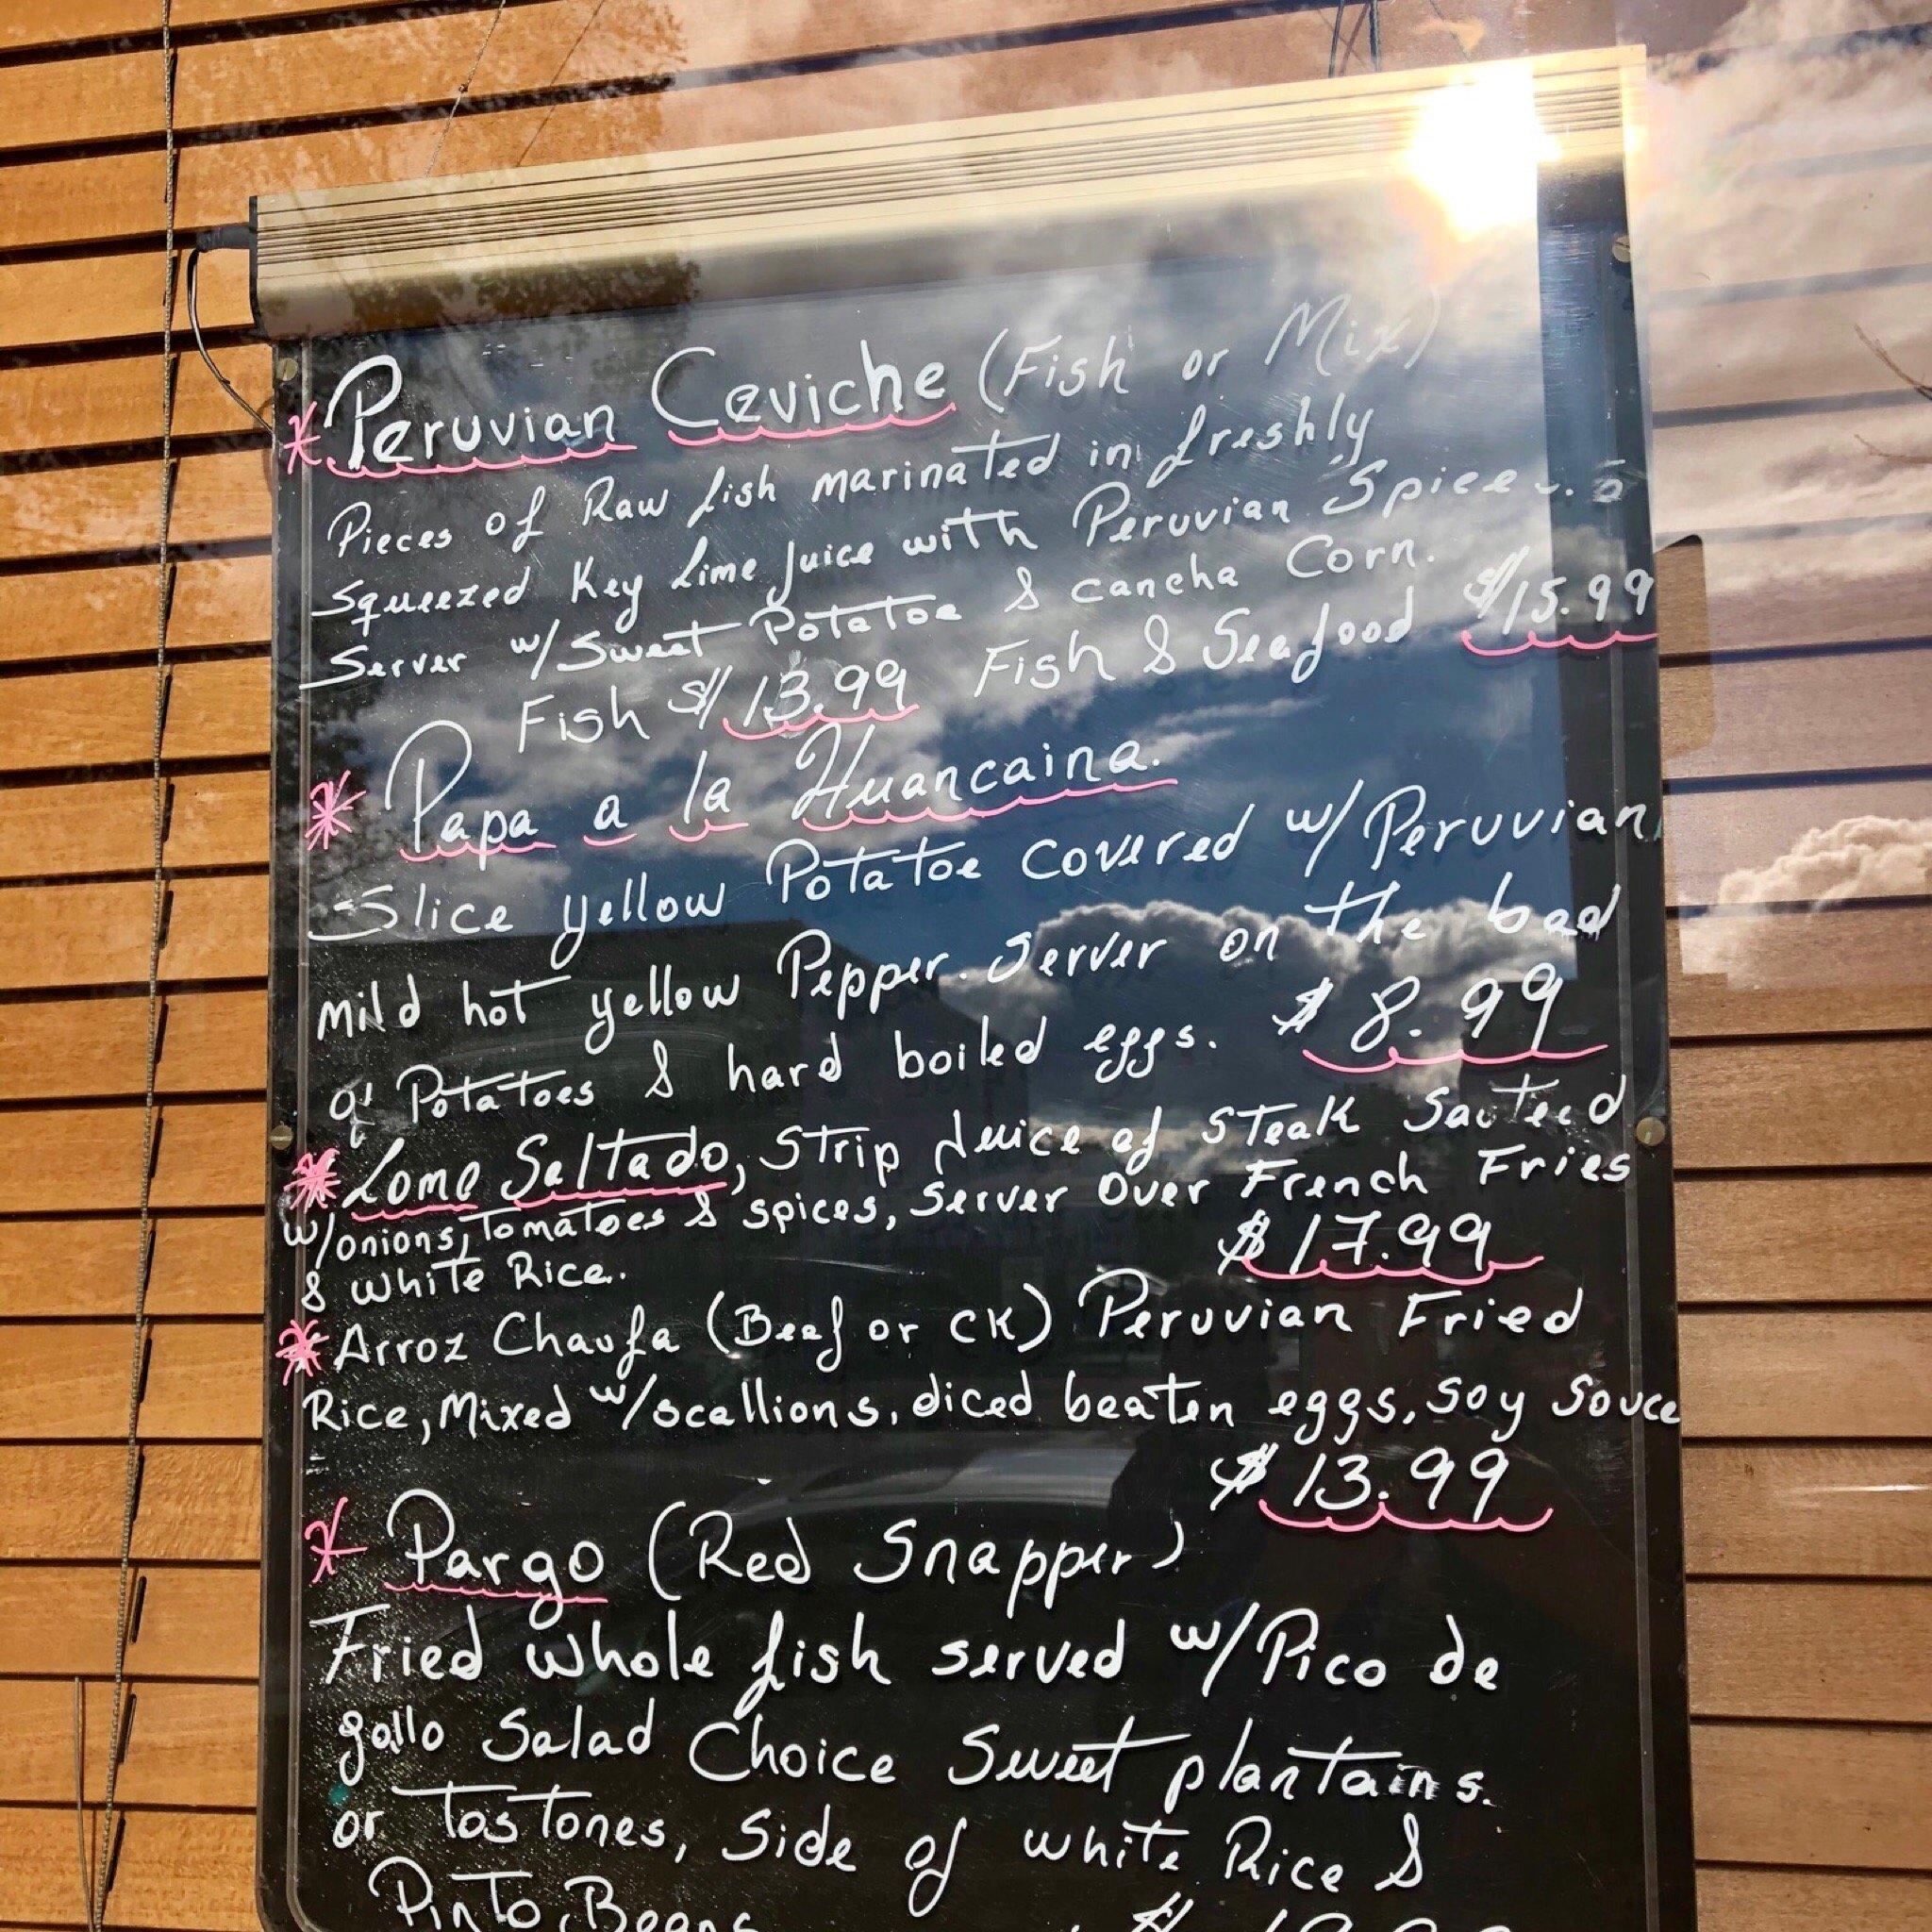 * Peruvian Ceviche (Fish or Mix)
Pieces of Raw fish marinated in freshly
squeezed Key Lime juice with Peruvian
Server w/Sweet Potatoe & cancha Corn.
Fish $13.99 Fish & Seafood $15.99
* Papa a la Huancaina.
Slice yellow Potatoe Covered w/Peruvian
mild hot yellow Pepper. Server on the bad
of Potatoes & hard boiled eggs. $8.99
* Lomo Saltado, Strip of Steak Sauteed
w/onions, Tomatoes & spices, Server Over French Fries
& white Rice. $17.99
* Arroz Chaufa (Beef or CK) Peruvian Fried
Rice, Mixed w/scallions, diced beaten eggs, Soy Souce
$13.99
* Pargo (Red Snapper)
Fried whole fish served w/Pico de
gallo Salad Choice Sweet plantains.
or tostones, Side of white Rice &
Pinto Beans